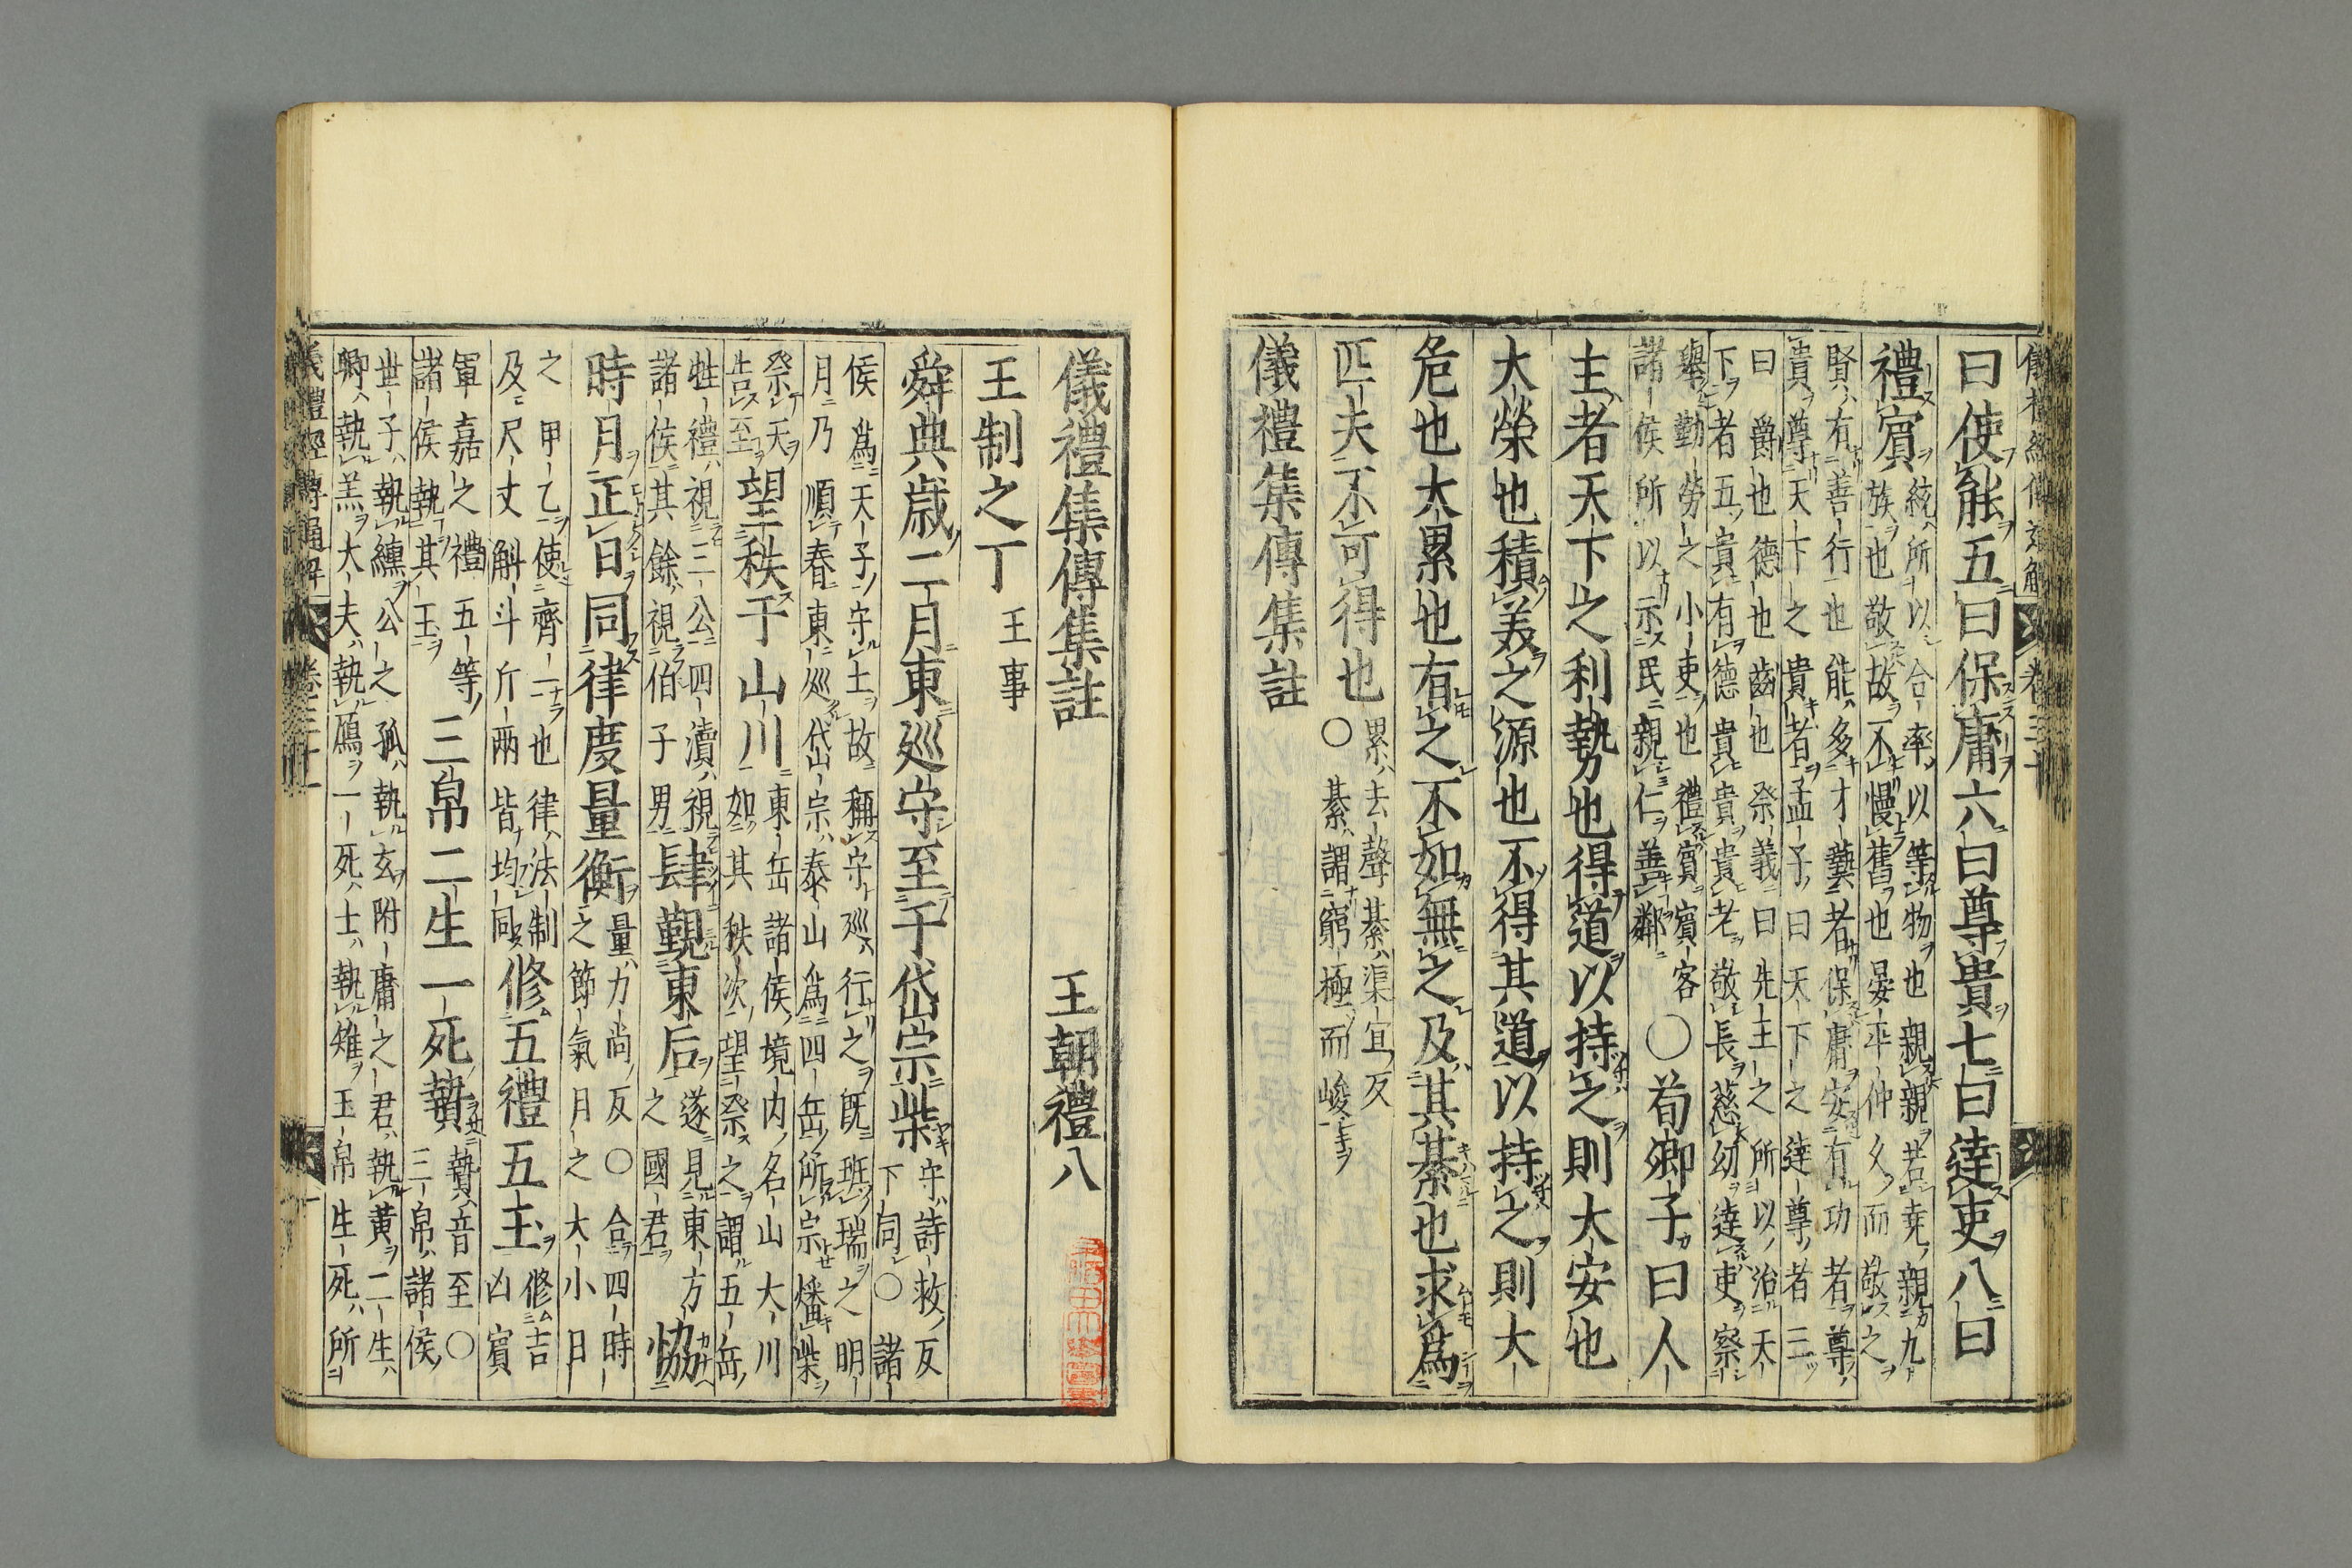 曰使能五曰保庸六曰尊貴七曰達吏八曰
禮賓統所以合率以等物也親親若堯親九
族也敬故不慢舊也晏平仲久而敬之
賢有善行也能多才藝者保庸安有功者尊
貴尊天下之貴者孟子曰天下之達尊者三
曰爵也德也齒也祭義曰先王之所以治天
下者五貴有德貴貴貴老敬長慈幼達吏察
舉勤勞之小吏也禮賓賓客
諸侯所以示民親仁善鄰〇荀卿子曰人
主者天下之利勢也得道以持之則大安也
大榮也積美之源也不得其道以持之則大
危也大累也有之不如無之及其綦也求爲
匹夫不可得也累去聲綦渠宜反
〇綦謂窮極而峻
儀禮集傳集註
儀禮集傳集註 王朝禮八
王制之丁 王事
舜典歲二月東巡守至于岱宗柴守詩救反
下同〇諸
侯爲天子守土故稱守巡行之既班瑞之明
月乃順春東巡岱宗泰山爲四岳所宗燔柴
祭天
告至望秩于山川東岳諸侯境内名山大川
如其秩次望祭之謂五岳
牲禮視三公四瀆視
諸侯其餘視伯子男肆覲東后遂見東方
之國君協
時月正日同律度量衡量力尚反〇合四時
之節氣月之大小日
之甲乙使齊一也律法制
及尺丈斛斗斤兩皆均同修五禮五玉修吉
凶賓
軍嘉之禮五等
諸侯執其玉三帛二生一死贄贄音至〇
三帛諸侯
世子執纁公之孤執玄附庸之君執黃二生
卿執羔大夫執鴈一死士執雉玉帛生死所